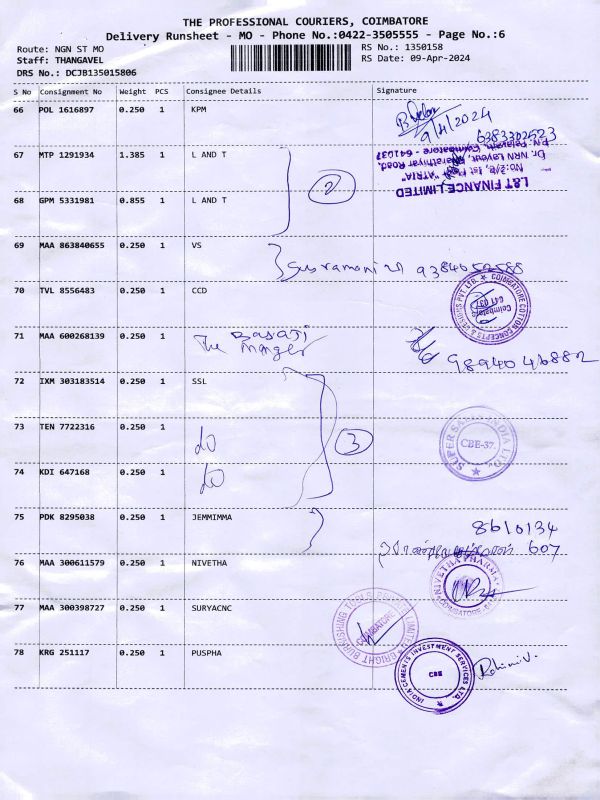 THE PROFESSIONAL COURIERS, COIMBATORE
Delivery Runsheet - MO - Phone No.:0422-3505555 - Page No.:6
Route: NGN ST MO
RS No.: 1350158
Staff: THANGAVEL
RS Date: 09-Apr-2024
DRS No.: DCJB135015806
S No Consignment No Weight PCS Consignee Details Signature
66 POL 1616897 0.250 1 KPM
9/4/2024
6383302523
67 MTP 1291934 1.385 1 L AND T
L&T FINANCE LIMITED
No:2/b, 1st "ATRIA"
Dr. NRN Layout, Bharathiyar Road,
P.N. Palayam, Coimbatore - 641037
2
68 GPM 5331981 0.855 1 L AND T
69 MAA 863840655 0.250 1 VS
Subramani 9384652588
70 TVL 8556483 0.250 1 CCD
COIMBATORE COTTON CONCEPTS & DESIGNS PVT. LTD.
Coimbatore
641 037
71 MAA 600268139 0.250 1
Basaji
The manger
98940 46882
72 IXM 303183514 0.250 1 SSL
73 TEN 7722316 0.250 1
do
3
SUPER SALES INDIA LTD.
CBE-37.
74 KDI 647168 0.250 1
do
75 PDK 8295038 0.250 1 JEMMIMMA
8610134
607
76 MAA 300611579 0.250 1 NIVETHA
NIVETHA PHARMA
COIMBATORE
77 MAA 300398727 0.250 1 SURYACNC
BRIGHT BURNISHING TOOLS PRIVATE LIMITED
COIMBATORE
78 KRG 251117 0.250 1 PUSPHA
INDIA CEMENTS INVESTMENT SERVICES LTD.
CBE
Rohini V.